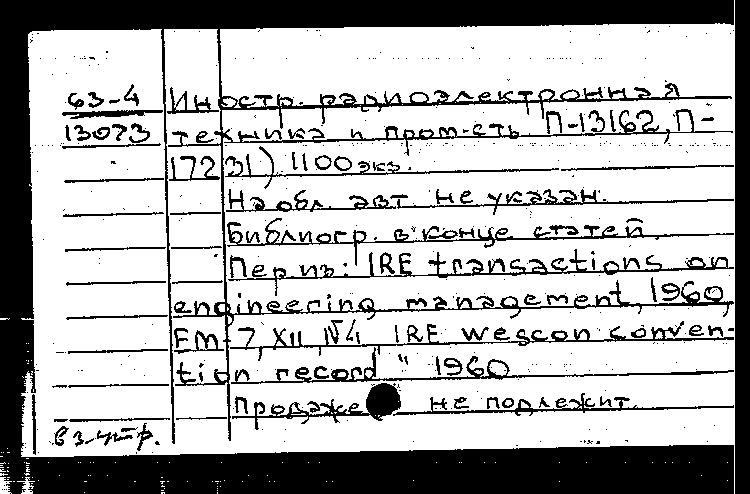 63-4 Иностр. радиоэлектронная
13073 техника и пром-сть П-13162, П-
17231) 1100 экз.
На обл. авт. не указан.
Библиогр. в конце статей.
Пер из: IRE transactions on
engineering management, 1960,
EM-7, XII, N4, IRE wescon conven-
tion record " 1960
Продаже не подлежит.